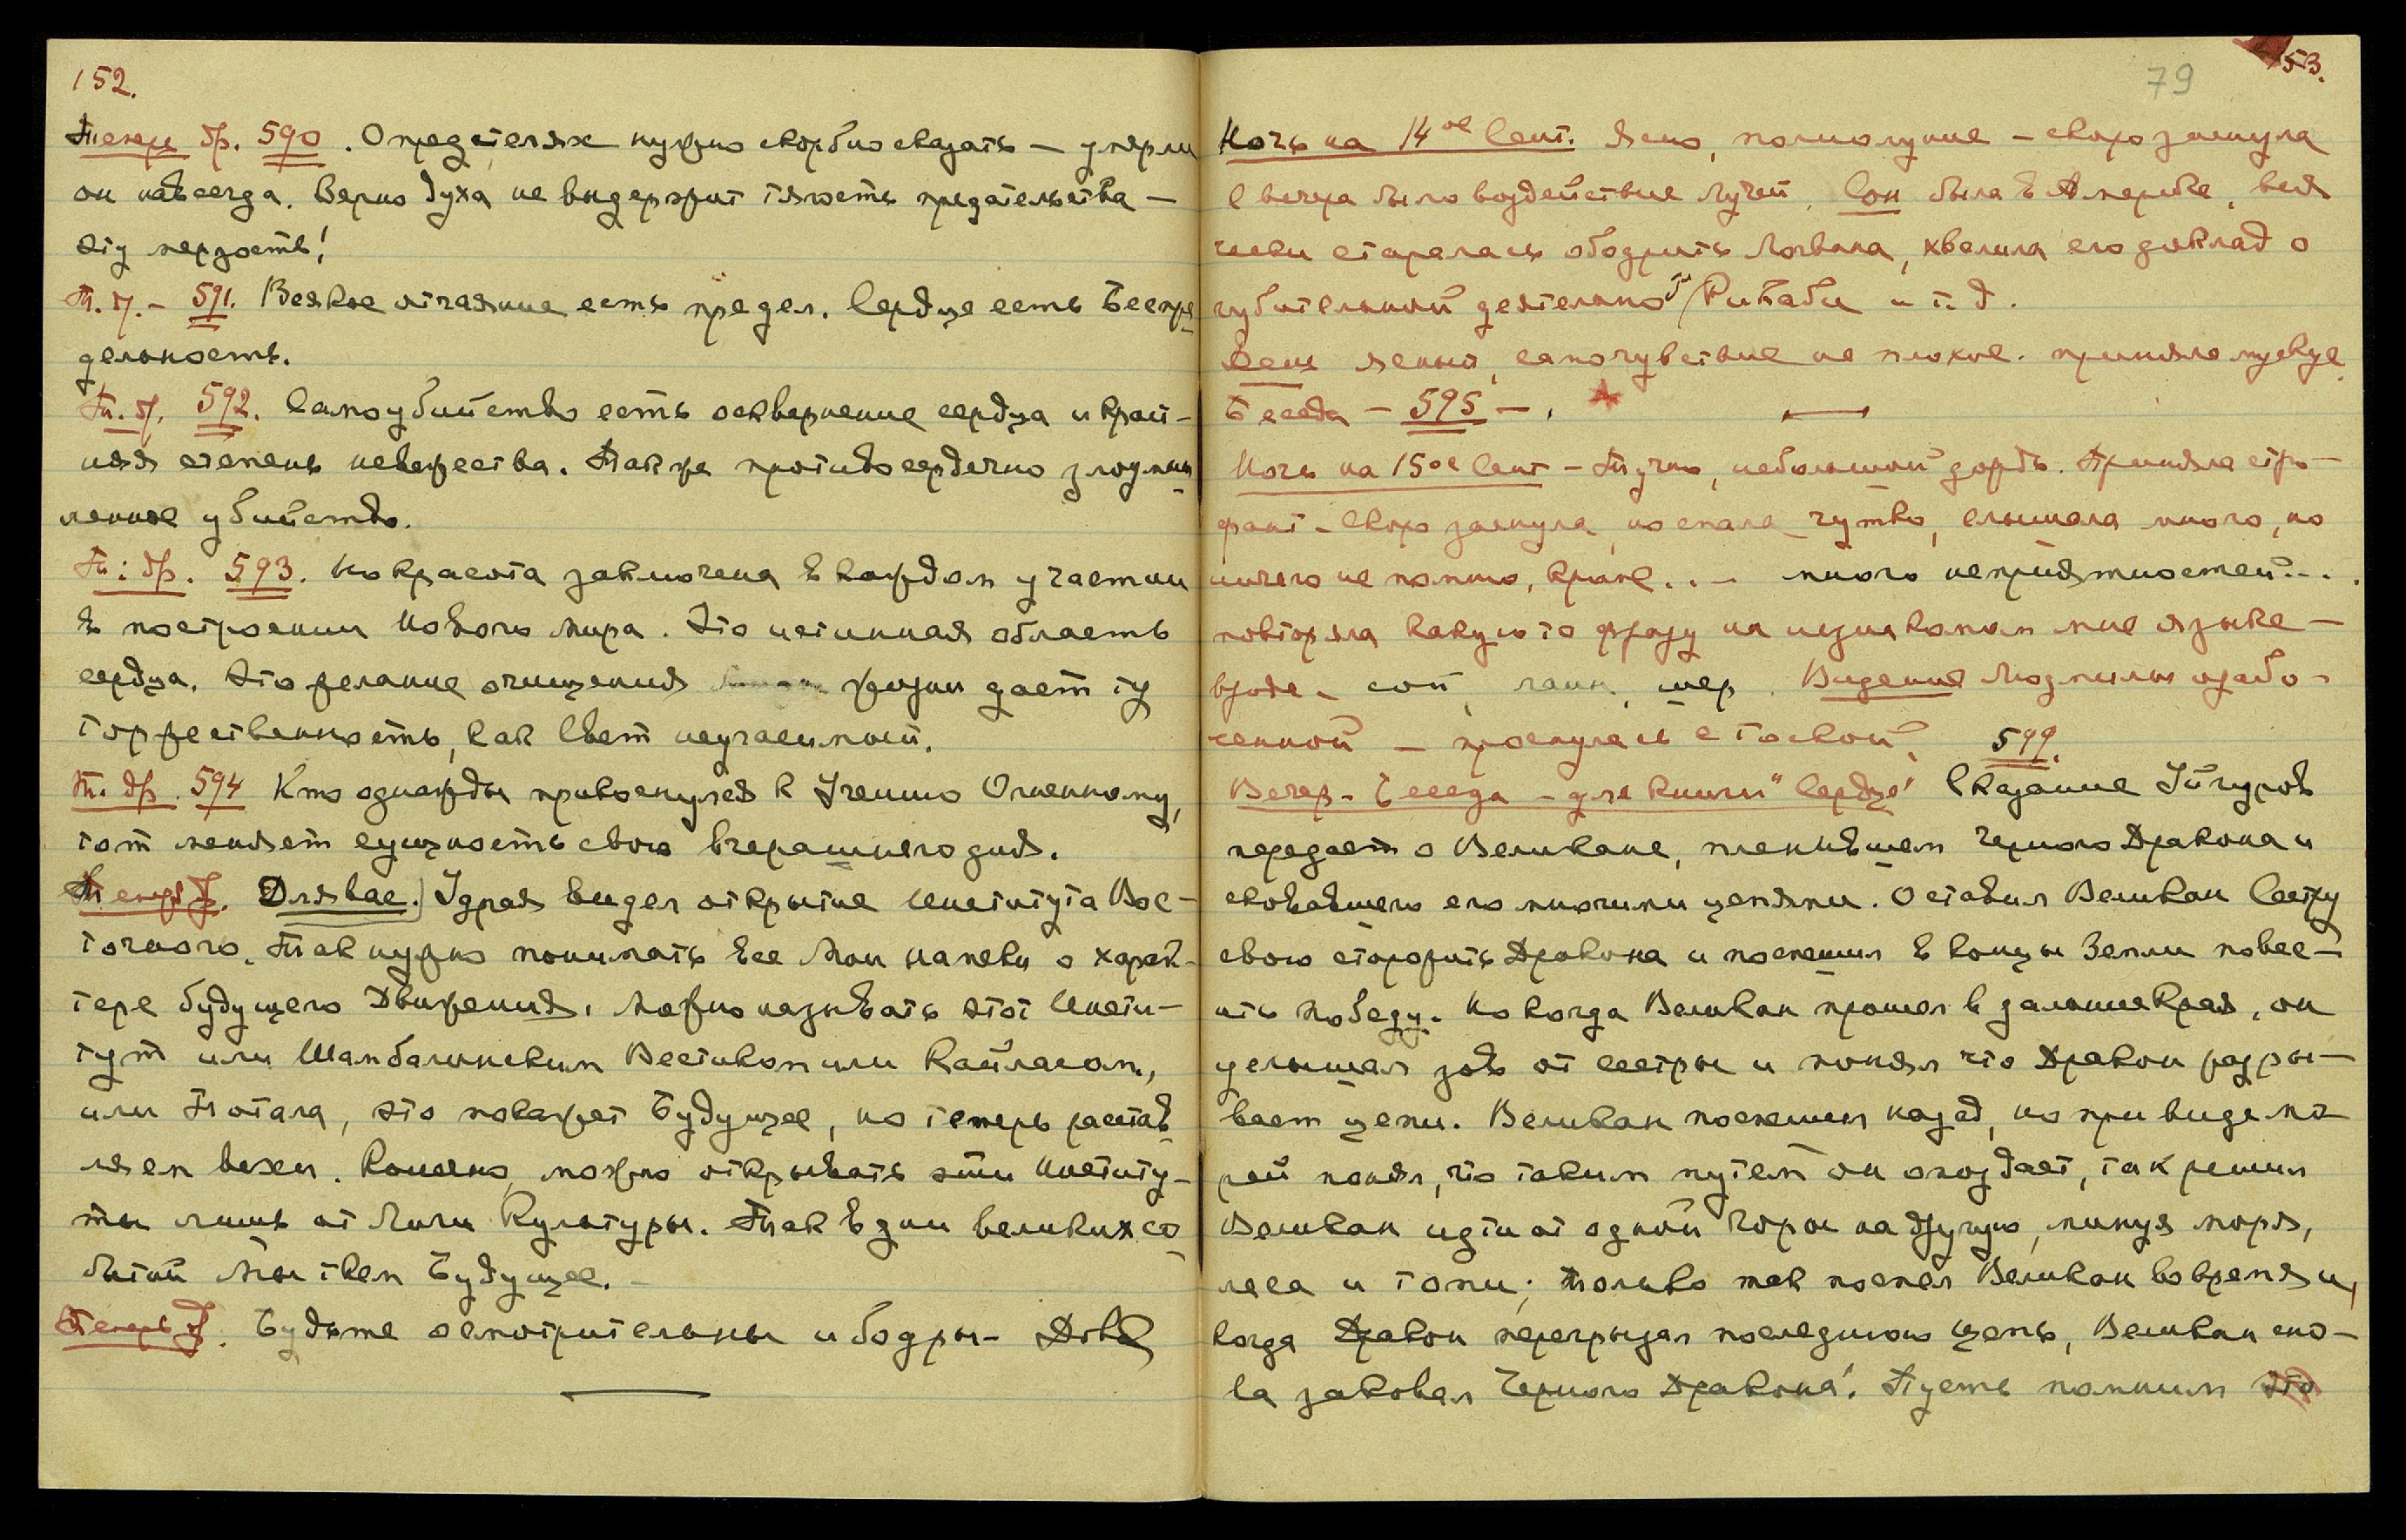 152.
Теперь др. 590. О предателях нужно скорбно сказать — умерли
он навсегда. Зерно духа не выдержит тяжесть предательства —
эту мерзость!
Т. д. — 591. Всякое отчаяние есть предел. Сердце есть Беспре
дельность.
Т. д. 592. Самоубийство есть осквернение сердца и край-
няя степень невежества. Так же противосердечно злоумы
ленное убийство.
Т: др. 593. Но красота заключена в каждом участии
в построении Нового Мира. Это истинная область
сердца. Это желание очищения жизни дает ту
торжественность, как Свет неугасимый.
Т. др. 594 Кто однажды прикоснулся к Учению Огненному,
тот меняет сущность свою вчерашнего дня.
Теперь д. Для вас. Удрая видел открытие Института Вос-
точного. Так нужно понимать все Мои намеки о харак-
тере будущего Движения. Можно назвать этот Инсти-
тут или Шамбалинским Вестником или Кайласом,
или Потала, это покажет Будущее, но теперь расстав
ляем вехи. Конечно, можно открывать эти Институ-
ты лишь от Лиги Культуры. Так в дни великих со
бытий Мы ткем Будущее. —
Теперь д. Будьте осмотрительны и бодры — Дов
79
153.
Ночь на 14ое Сент. Ясно, полнолуние — скоро заснула
с вечера было воздействие лучей. Сон была в Америке, вся
чески старалась ободрить Логвана, хвалила его доклад о
губительной деятельности Ритаби и т. д.
День ясный, самочувствие не плохое. приняла мускус
Беседа — 595 — .
Ночь на 15ое Сент — Тучно, небольшой дождь. Приняла стро-
фант — Скоро заснула, но спала чутко, слышала много, но
ничего не помню, кроме.. — много неприятностей...
повторяла какую то фразу на незнакомом мне языке —
вроде — сой, , шер. Видение Людмилы озабо-
ченной — проснулась с тоской. 599.
Вечер — Беседа — для книги "Сердце" Сказание Уйгуров
передает о Великане, пленившем Черного Дракона и
сковавшего его многими цепями. Оставил Великан Сестру
свою сторожить Дракона и поспешил в концы Земли повес-
тить победу. Но когда Великан прошел в дальние края, он
услышал зов от сестры и понял что Дракон разры-
вает цепи. Великан поспешил назад, но при виде мо
рей понял, что таким путем он опоздает, так решил
Великан идти от одной Горы на другую, минуя моря,
леса и топи; только так поспел Великан вовремя и,
когда Дракон перегрызал последнюю цепь, Великан сно-
ва заковал Черного Дракона. Пусть помним это